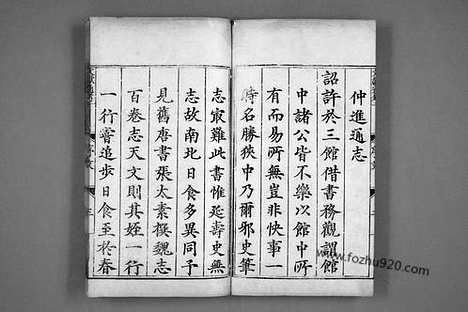 仲進通志
詔許於三館借書務觀謂館
中諸公皆不樂以館中所
有而易所無豈非快事一
時名勝狹中乃爾邪史筆
志最難此書惟延壽史無
志故南北日食多異同予
見舊唐書張太素撰魏志
百卷志天文則其姪一行
一行嘗追步日食至於春
www.fozhu920.com